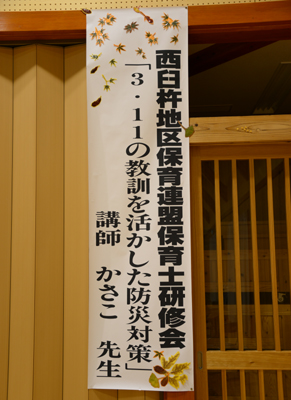 西臼杵地区保育連盟保育士研修会
「3・11の教訓を活かした防災対策」
講師 かさこ 先生